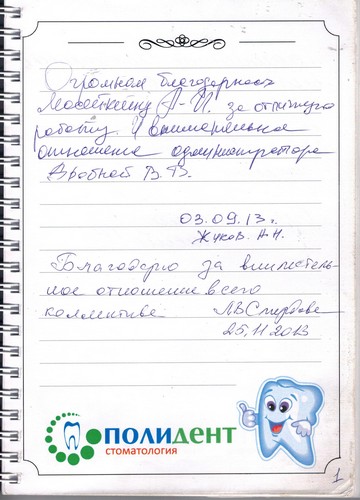 Огромная благодарность
Мосейкину А-И. за отличную
работу. И внимательное
отношение администратора
В.В.
03.09.13г.
Жуков Н.Н.
Благодарю за вниматель-
ное отношение всего
коллектива
25.11.2013
ПОЛИДЕНТ
СТОМАТОЛОГИЯ
1